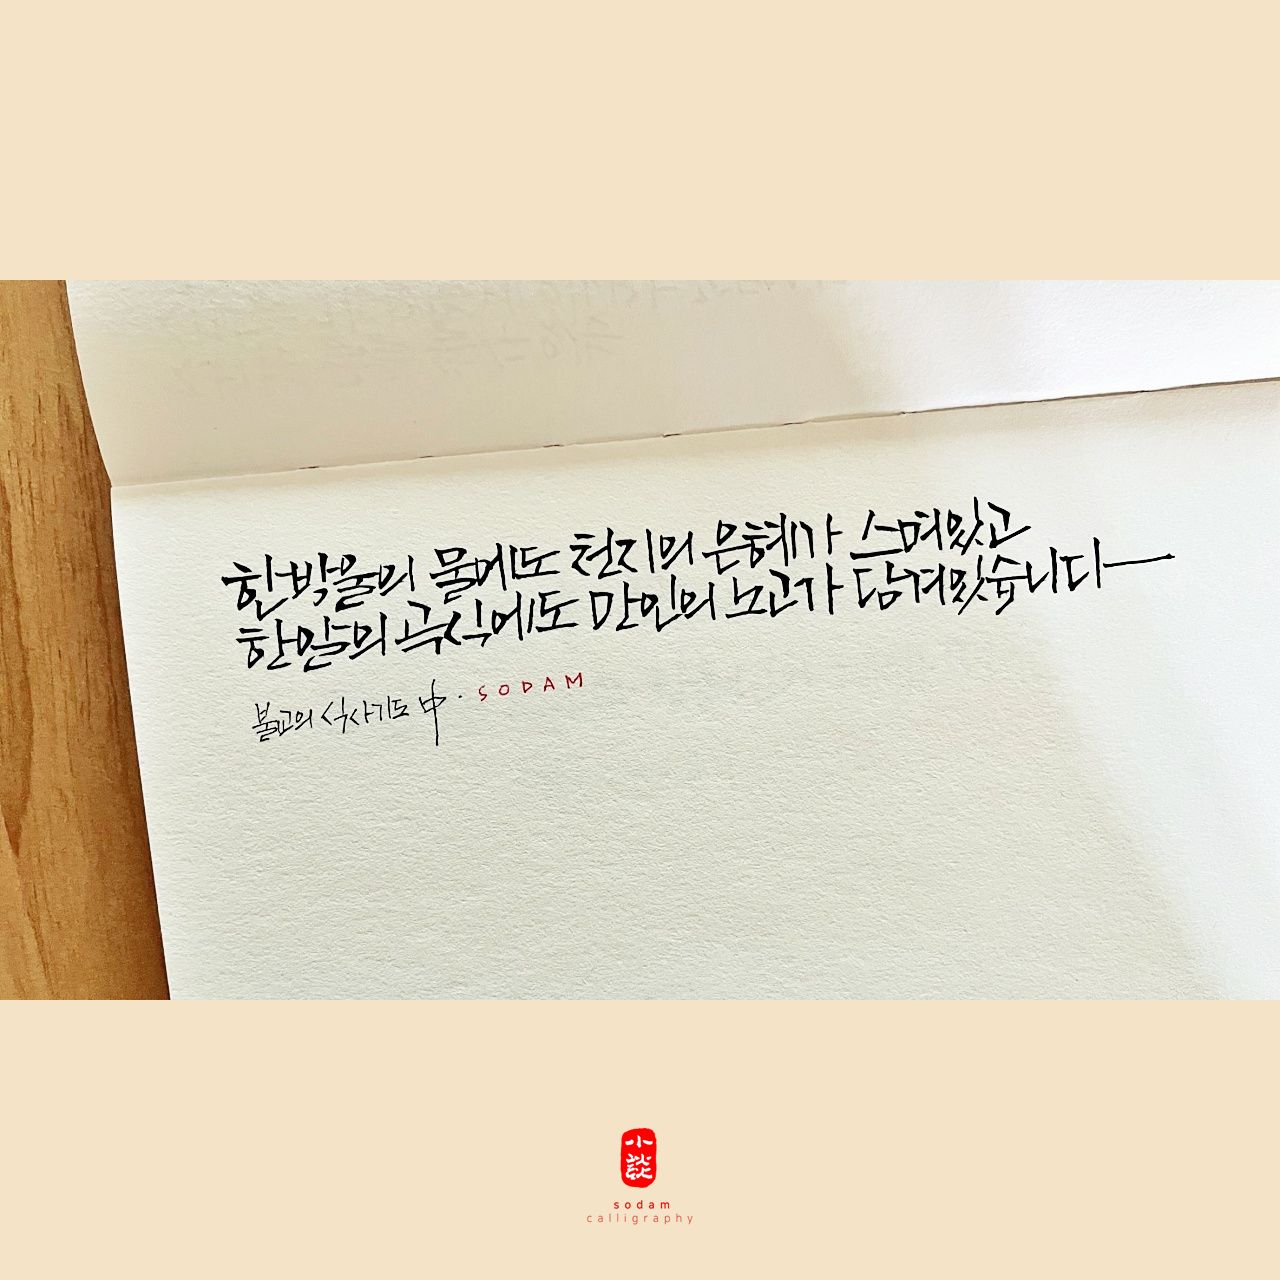 한방울의 물에도 천지의 은혜가 스며있고
한알의 곡식에도 만인의 노고가 담겨있습니다
불교의 식사기도 中 · SODAM
小談
sodam
calligraphy